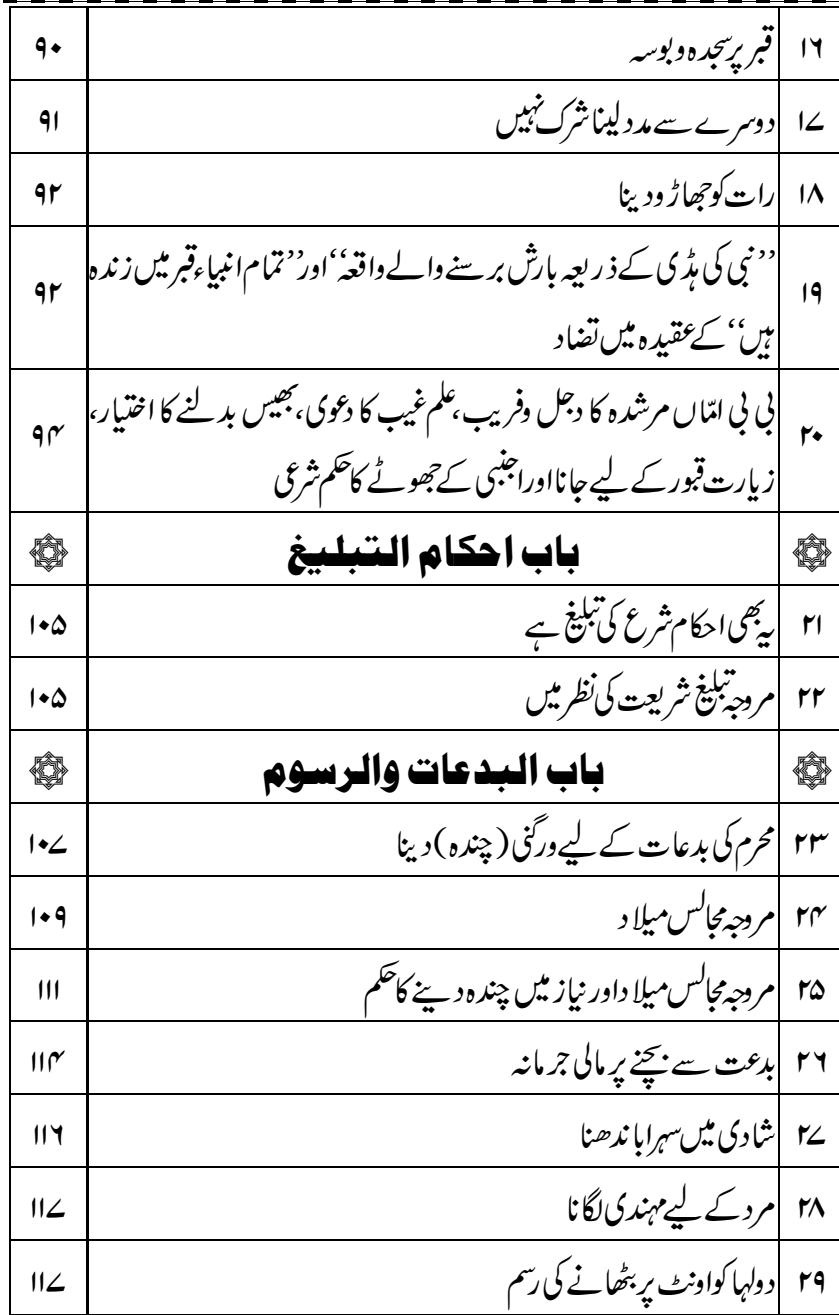 ۱۶ قبر پر سجدہ و بوسہ ۹۰
۱۷ دوسرے سے مدد لینا شرک نہیں ۹۱
۱۸ رات کو جھاڑو دینا ۹۲
۱۹ ’’نبی کی ہڈی کے ذریعہ بارش برسنے والے واقعہ‘‘ اور ’’تمام انبیاء قبر میں زندہ ۹۲
ہیں‘‘ کے عقیدہ میں تضاد
۲۰ بی بی امّاں مرشدہ کا دجل و فریب، علم غیب کا دعوی، بھیس بدلنے کا اختیار، ۹۴
زیارت قبور کے لیے جانا اور اجنبی کے جھوٹے کا حکم شرعی
باب احکام التبلیغ
۲۱ یہ بھی احکام شرع کی تبلیغ ہے ۱۰۵
۲۲ مروجہ تبلیغ شریعت کی نظر میں ۱۰۵
باب البدعات والرسوم
۲۳ محرم کی بدعات کے لیے ورگنی (چندہ) دینا ۱۰۷
۲۴ مروجہ مجالس میلاد ۱۰۹
۲۵ مروجہ مجالس میلاد اور نیاز میں چندہ دینے کا حکم ۱۱۱
۲۶ بدعت سے بچنے پر مالی جرمانہ ۱۱۴
۲۷ شادی میں سہرا باندھنا ۱۱۶
۲۸ مرد کے لیے مہندی لگانا ۱۱۷
۲۹ دولہا کو اونٹ پر بٹھانے کی رسم ۱۱۷